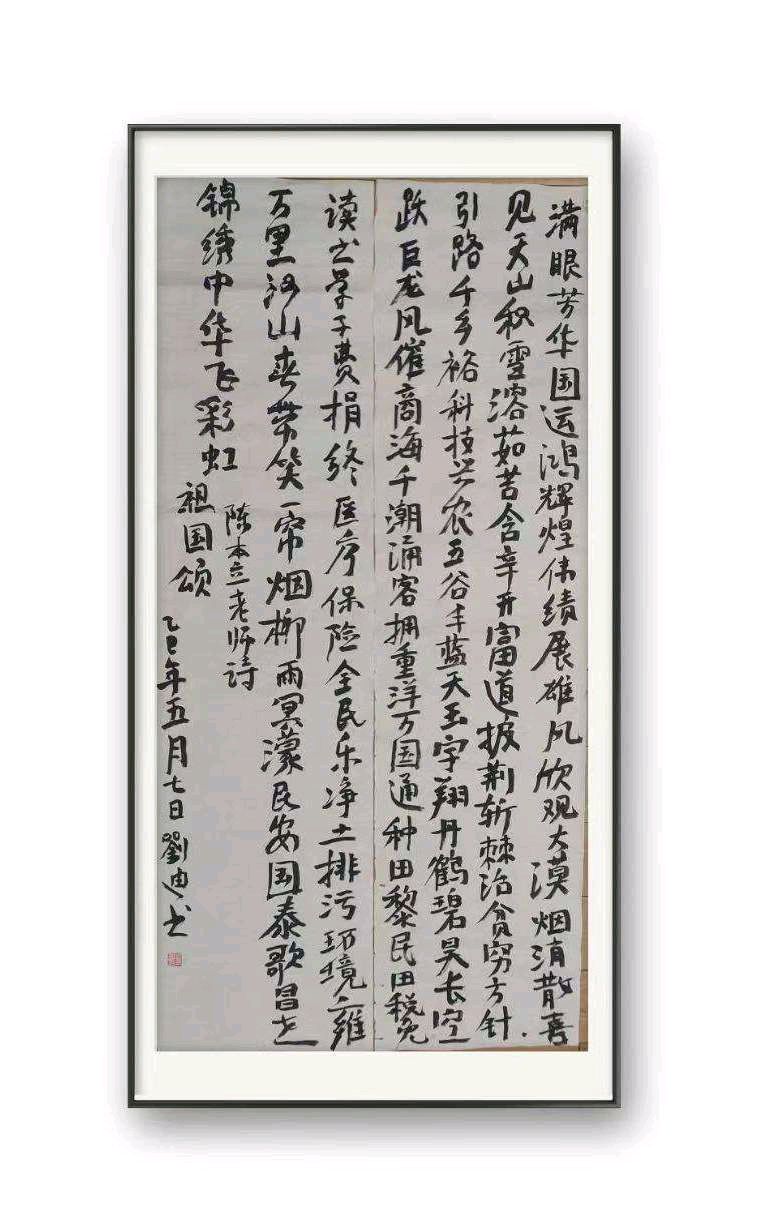 满眼芳华国运鸿辉煌伟绩展雄风欣观大漠烟消散喜
见天山积雪溶茹苦含辛开富道披荆斩棘治贫穷方针
引路千乡裕科技兴农五谷丰蓝天玉宇翔丹鹤碧昊长空
跃巨龙风催商海千潮涌客拥重洋万国通种田黎民田税免
读书学子费捐终医疗保险全民乐净土排污环境维
万里河山春带笑一帘烟柳雨冥濛民安国泰歌昌世
锦绣中华飞彩虹
陈本立老师诗
祖国颂
乙巳年五月七日劉迪书